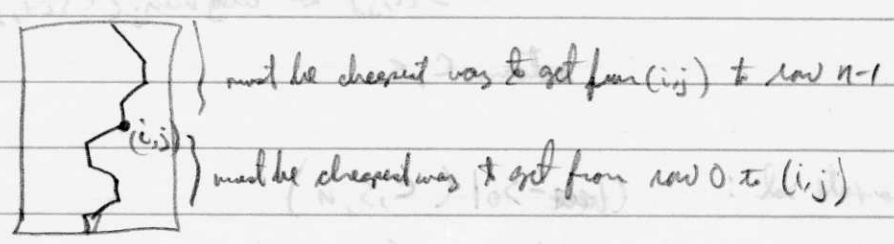 must be cheapest way to get from (i,j) to row n-1
(i,j)
must be cheapest way to get from row 0 to (i,j)